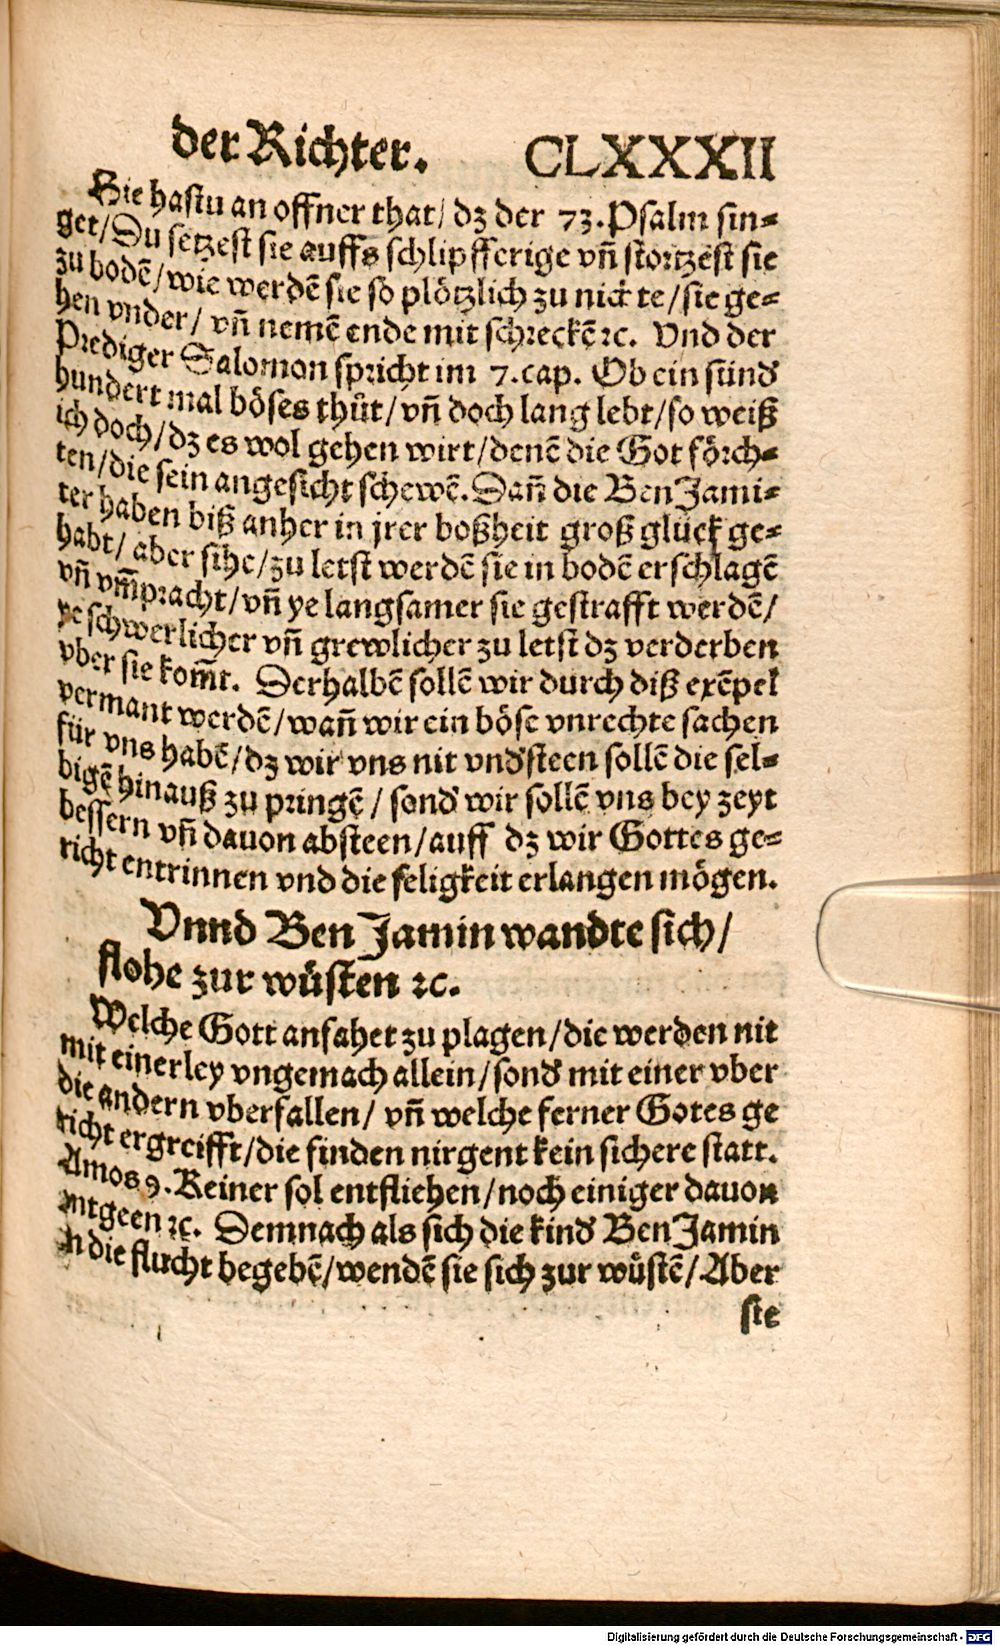 der Richter. CLXXXII
Hie hastu an offner that/ dz der 73. Psalm sin⸗
get/Du setzest sie auffs schlipfferige vñ stortzest sie
zu bodē/wie werdē sie so plötzlich zu nichte/sie ge⸗
hen vnder/ vñ nemē ende mit schreckē ꝛc. Vnd der
Prediger Salomon spricht im 7.cap. Ob ein sünd̕
hundert mal böses thůt/vñ doch lang lebt/so weiß
ich doch/dz es wol gehen wirt/denē die Got förch⸗
ten/die sein angesicht schewē. Dañ die BenJami⸗
ter haben biß anher in jrer boßheit groß glück ge⸗
habt/ aber sihe/zu letst werdē sie in bodē erschlagē
vñ vm̄pracht/vñ ye langsamer sie gestrafft werdē/
ye schwerlicher vñ grewlicher zu letst dz verderben
vber sie kom̄t. Derhalbē sollē wir durch diß exēpel
vermant werdē/wañ wir ein böse vnrechte sachen
für vns habē/dz wir vns nit vnd̕steen sollē die sel⸗
bigē hinauß zu pringē/ sond̕ wir sollē vns bey zeyt
bessern vñ dauon absteen/auff dz wir Gottes ge⸗
richt entrinnen vnd die seligkeit erlangen mögen.
Vnnd Ben Jamin wandte sich/
flohe zur wüsten ꝛc.
Welche Gott anfahet zu plagen/die werden nit
mit einerley vngemach allein/sond̕ mit einer vber
die andern vberfallen/ vñ welche ferner Gotes ge
richt ergreifft/die finden nirgent kein sichere statt.
Amos 9. Keiner sol entfliehen/noch einiger dauon
entgeen ꝛc. Demnach als sich die kind̕ BenJamin
in die flucht begebē/wendē sie sich zur wüstē/Aber
sie
Digitalisierung gefördert durch die Deutsche Forschungsgemeinschaft - DFG